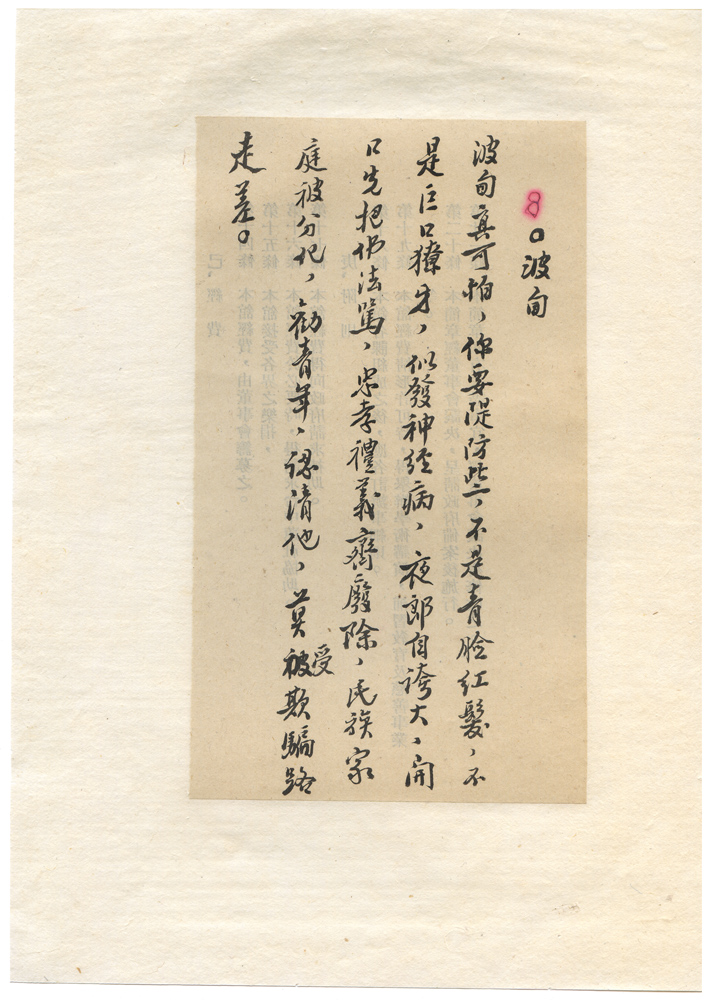 8。波旬
波旬真可怕，你要隄防些，不是青臉紅髮，不
是巨口獠牙，似發神經病，夜郎自誇大，開
口先把佛法罵，忠孝禮義齊廢除，民族家
庭被分化，勸青年，認清他，莫被受欺騙路
走差。